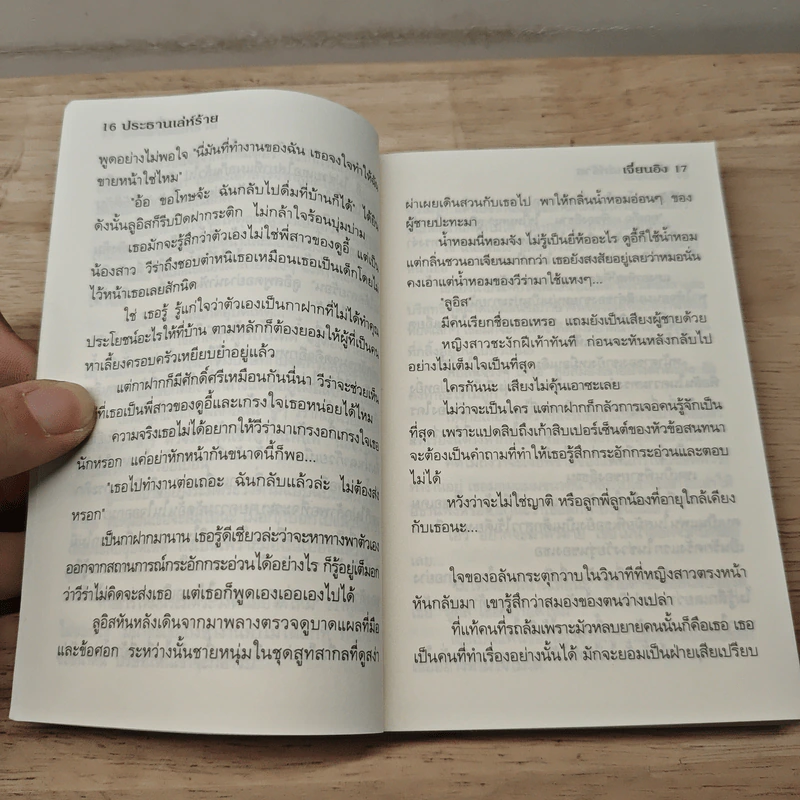 16 ประธานเล่ห์ร้าย
พูดอย่างไม่พอใจ "นี่มันที่ทำงานของฉัน เธอจงใจทำให้ฉัน
ขายหน้าใช่ไหม"
"อ้อ ขอโทษจ้ะ ฉันกลับไปดื่มที่บ้านก็ได้" ได้ยิน
ดังนั้นลูอิสก็รีบปิดฝากระติก ไม่กล้าใจร้อนบุ่มบ่าม
เธอมักจะรู้สึกว่าตัวเองไม่ใช่พี่สาวของดูอี้ แต่เป็น
น้องสาว วีร่าถึงชอบตำหนิเธอเหมือนเธอเป็นเด็กโดยไม่
ไว้หน้าเธอเลยสักนิด
ใช่ เธอรู้ รู้แก่ใจว่าตัวเองเป็นกาฝากที่ไม่ได้ทำคุณ
ประโยชน์อะไรให้ที่บ้าน ตามหลักก็ต้องยอมให้ผู้ที่เป็นคน
หาเลี้ยงครอบครัวเหยียบย่ำอยู่แล้ว
แต่กาฝากก็มีศักดิ์ศรีเหมือนกันนี่นา วีร่าจะช่วยเห็น
ที่เธอเป็นพี่สาวของดูอี้และเกรงใจเธอหน่อยได้ไหม
ความจริงเธอไม่ได้อยากให้วีร่ามาเกรงอกเกรงใจเธอ
นักหรอก แค่อย่าหักหน้ากันขนาดนี้ก็พอ...
"เธอไปทำงานต่อเถอะ ฉันกลับแล้วล่ะ ไม่ต้องส่ง
หรอก"
เป็นกาฝากมานาน เธอรู้ดีเชียวล่ะว่าจะหาทางพาตัวเอง
ออกจากสถานการณ์กระอักกระอ่วนได้อย่างไร ก็รู้อยู่เต็มอก
ว่าวีร่าไม่คิดจะส่งเธอ แต่เธอก็พูดเองเออเองไปได้
ลูอิสหันหลังเดินจากมาพลางตรวจดูบาดแผลที่มือ
และข้อศอก ระหว่างนั้นชายหนุ่มในชุดสูทสากลที่ดูสง่า
เจี๋ยนอิง 17
ผ่าเผยเดินสวนกับเธอไป พาให้กลิ่นน้ำหอมอ่อนๆ ของ
ผู้ชายปะทะมา
น้ำหอมนี่หอมจัง ไม่รู้เป็นยี่ห้ออะไร ดูอี้ก็ใช้น้ำหอม
แต่กลิ่นชวนอาเจียนมากกว่า เธอยังสงสัยอยู่เลยว่าหมอนั่น
คงเอาแต่น้ำหอมของวีร่ามาใช้แหงๆ...
"ลูอิส"
มีคนเรียกชื่อเธอเหรอ แถมยังเป็นเสียงผู้ชายด้วย
หญิงสาวชะงักฝีเท้าทันที ก่อนจะหันหลังกลับไป
อย่างไม่เต็มใจเป็นที่สุด
ใครกันนะ เสียงไม่คุ้นเอาซะเลย
ไม่ว่าจะเป็นใคร แต่กาฝากก็กลัวการเจอคนรู้จักเป็น
ที่สุด เพราะแปดสิบถึงเก้าสิบเปอร์เซ็นต์ของหัวข้อสนทนา
จะต้องเป็นคำถามที่ทำให้เธอรู้สึกกระอักกระอ่วนและตอบ
ไม่ได้
หวังว่าจะไม่ใช่ญาติ หรือลูกพี่ลูกน้องที่อายุใกล้เคียง
กับเธอนะ...
ใจของอลันกระตุกวาบในวินาทีที่หญิงสาวตรงหน้า
หันกลับมา เขารู้สึกว่าสมองของตนว่างเปล่า
ที่แท้คนที่รถล้มเพราะมัวหลบยายคนนั้นก็คือเธอ เธอ
เป็นคนที่ทำเรื่องอย่างนั้นได้ มักจะยอมเป็นฝ่ายเสียเปรียบ